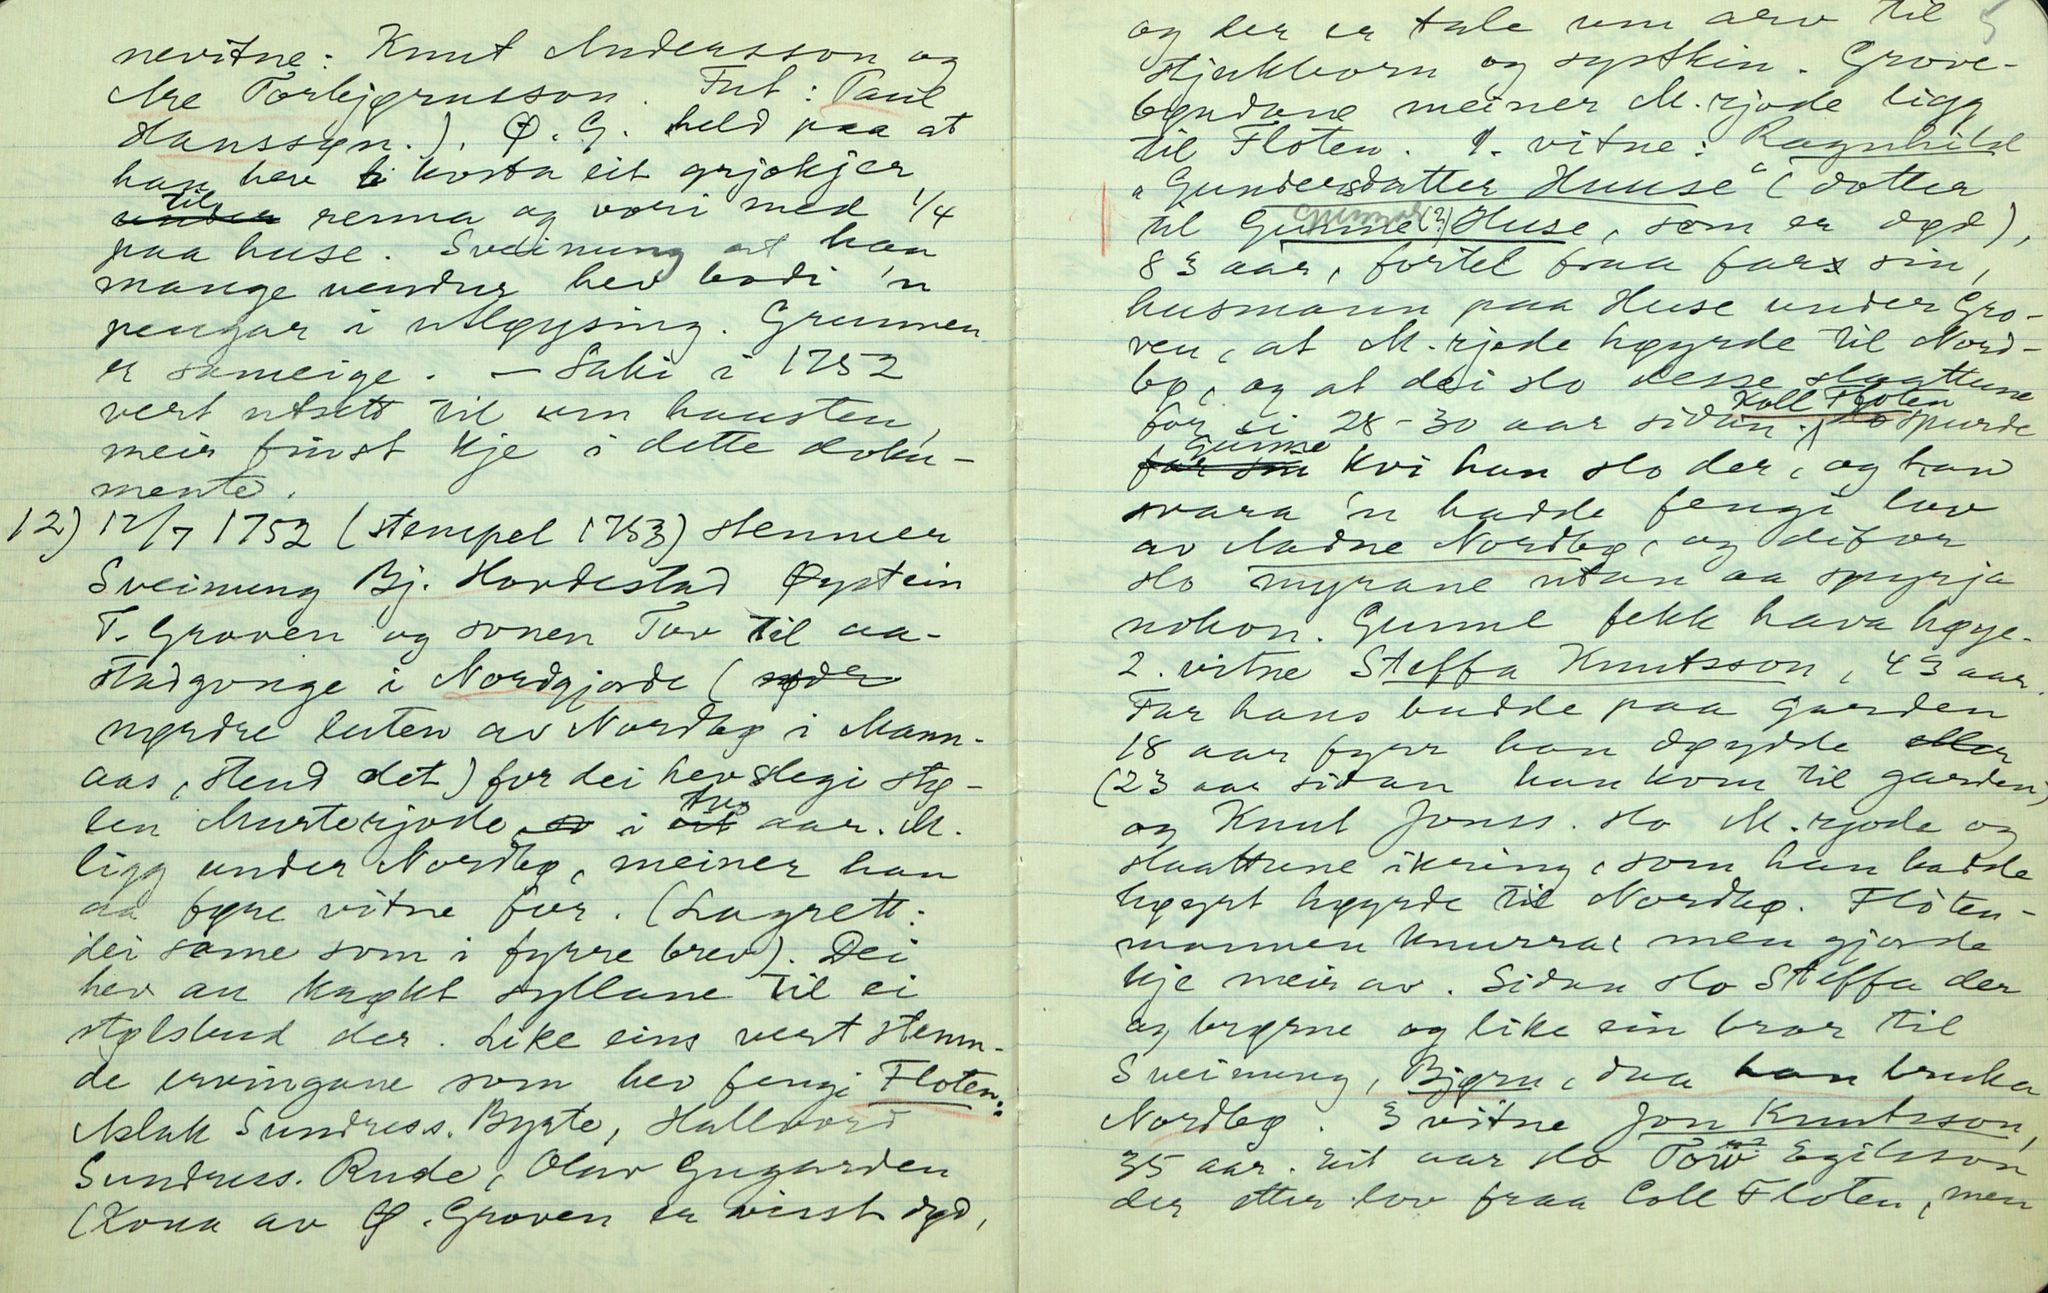 nevitne: Knut Andersson og
Are Torbjørnsson. Fut: Paul
Hanssøn.). Ø. G. held paa at
han hev kosta eit grjotkjer
til renna og vori med 1/4
paa huse. Sveinung at han
mange vendur hev bodi 'n
pengar i utløysing. Grunnen
er sameige. – Saki i 1752
vert utsett til um hausten,
meir finst kje i dette doku-
mente.
12) 12/7 1752 (stempel 1753) stemner
Sveinung Bj. Hovdestad Øystein
T. Groven og sonen Tov til aa-
stadgonge i Nordgjorde (
nørdre luten av Nordbø i Mann-
aas, stend det) for dei hev slegi stø-
len Murterjode i tvo aar. M.
ligg under Nordbø, meiner han
aa føre vitne for. (Lagrett:
dei same som i fyrre brev). Dei
hev au køkt syllane til ei
stølsbud der. Like eins vert stemn-
de ervingane som hev fengi Floten:
Aslak Sundress. Byrte, Hallvord
Sundress. Rude, Olav Gugarden
(Kona av Ø. Groven er visst død,
5
og der er tale um arv til
stjukborn og systkin. Grove-
bøndane meiner M.rjode ligg
til Floten. 1. vitne: Ragnhild
"Gundersdatter Huuse" (dotter
til Gunne (?) Huse, som er død),
83 aar, fortel fraa far sin,
husmann paa Huse under Gro-
ven, at M.rjode høyrde til Nord-
bø, og at dei slo desse slaattune
for ei 28-30 aar sidan. Koll Floten spurde
Gunne kvi han slo der, og han
svara 'n hadde fengi lov
av Aadne Nordbø, og difor
slo myrane utan aa spyrja
nokon. Gunne fekk hava høye.
2. vitne Steffa Knutsson, 43 aar.
Far hans budde paa garden
18 aar fyrr han døydde
(23 aar sidan han kom til garden)
og Knut Jonss. slo M.rjode og
slaattune ikring, som han hadde
høyrt høyrde til Nordbø. Floten-
mannen knurra, men gjorde
kje meir av. Sidan slo Steffa der
og brørne og like ein bror til
Sveinung, Bjørn, daa han bruka
Nordbø. 3 vitne Jon Knutsson,
35 aar. Eit aar slo Tov Egilsson
der etter lov fraa Coll Floten, men